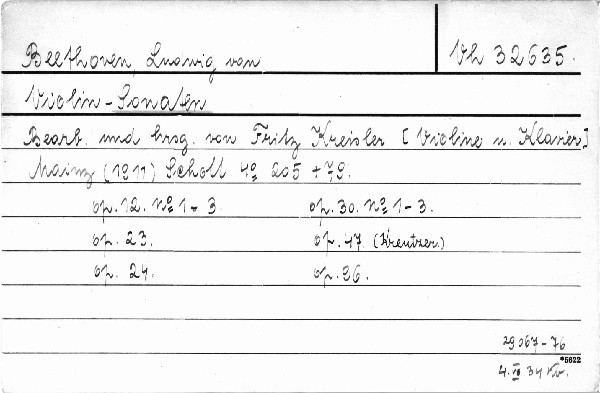 Beethoven, Ludwig van
Vh 32635.
Violin-Sonaten
Bearb. und hrsg. von Fritz Kreisler [Violine u. Klavier]
Mainz (1911) Schott 4º 205 + 79.
op. 12. Nº 1-3 op. 30. Nº 1-3.
op. 23. op. 47. (Kreutzer.)
op. 24. op. 96.
29067-76
*5622
4. VI 34 Kv.